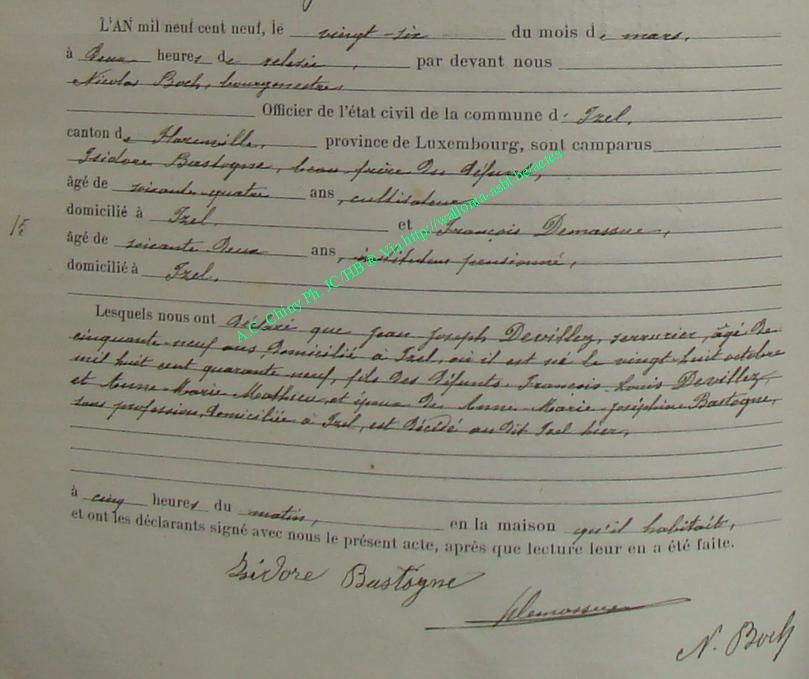 L'AN mil neuf cent neuf, le vingt-six du mois de mars,
à Deux heures de relevée, par devant nous
Nicolas Boch, bourgmestre
Officier de l'état civil de la commune d'Izel,
canton de Florenville, province de Luxembourg, sont camparus
Isidore Bastogne, beau-frère du défunt,
âgé de soixante-quatre ans, cultivateur
domicilié à Izel et François Demassue,
15
âgé de soixante Deux ans, instituteur pensionné,
domicilié à Izel.
A.C. Chiny Ph. JC/HB ® Via http://wallonia-asbl.be/actes
Lesquels nous ont déclaré que Jean Joseph Devillez, serrurier, âgé de
cinquante-neuf ans, domicilié à Izel, où il est né le vingt huit octobre
mil huit cent quarante neuf, fils des défunts François-Louis Devillez
et Anne-Marie Mathieu et époux de Anne-Marie-Joséphine Bastogne,
sans profession, domiciliée à Izel, est décédé au dit Izel hier,
à cinq heures du matin, en la maison qu'il habitait,
et ont les déclarants signé avec nous le présent acte, après que lecture leur en a été faite.
Isidore Bastogne
Demassue
N. Boch